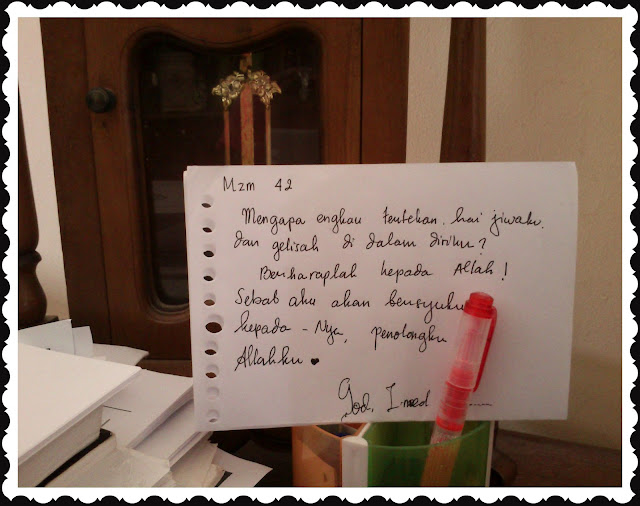 Mzm 42
Mengapa engkau tertekan, hai jiwaku,
dan gelisah di dalam diriku?
Berharaplah kepada Allah!
Sebab aku akan bersyuku
kepada-Nya, penolongku
Allahku ♥
God, I need